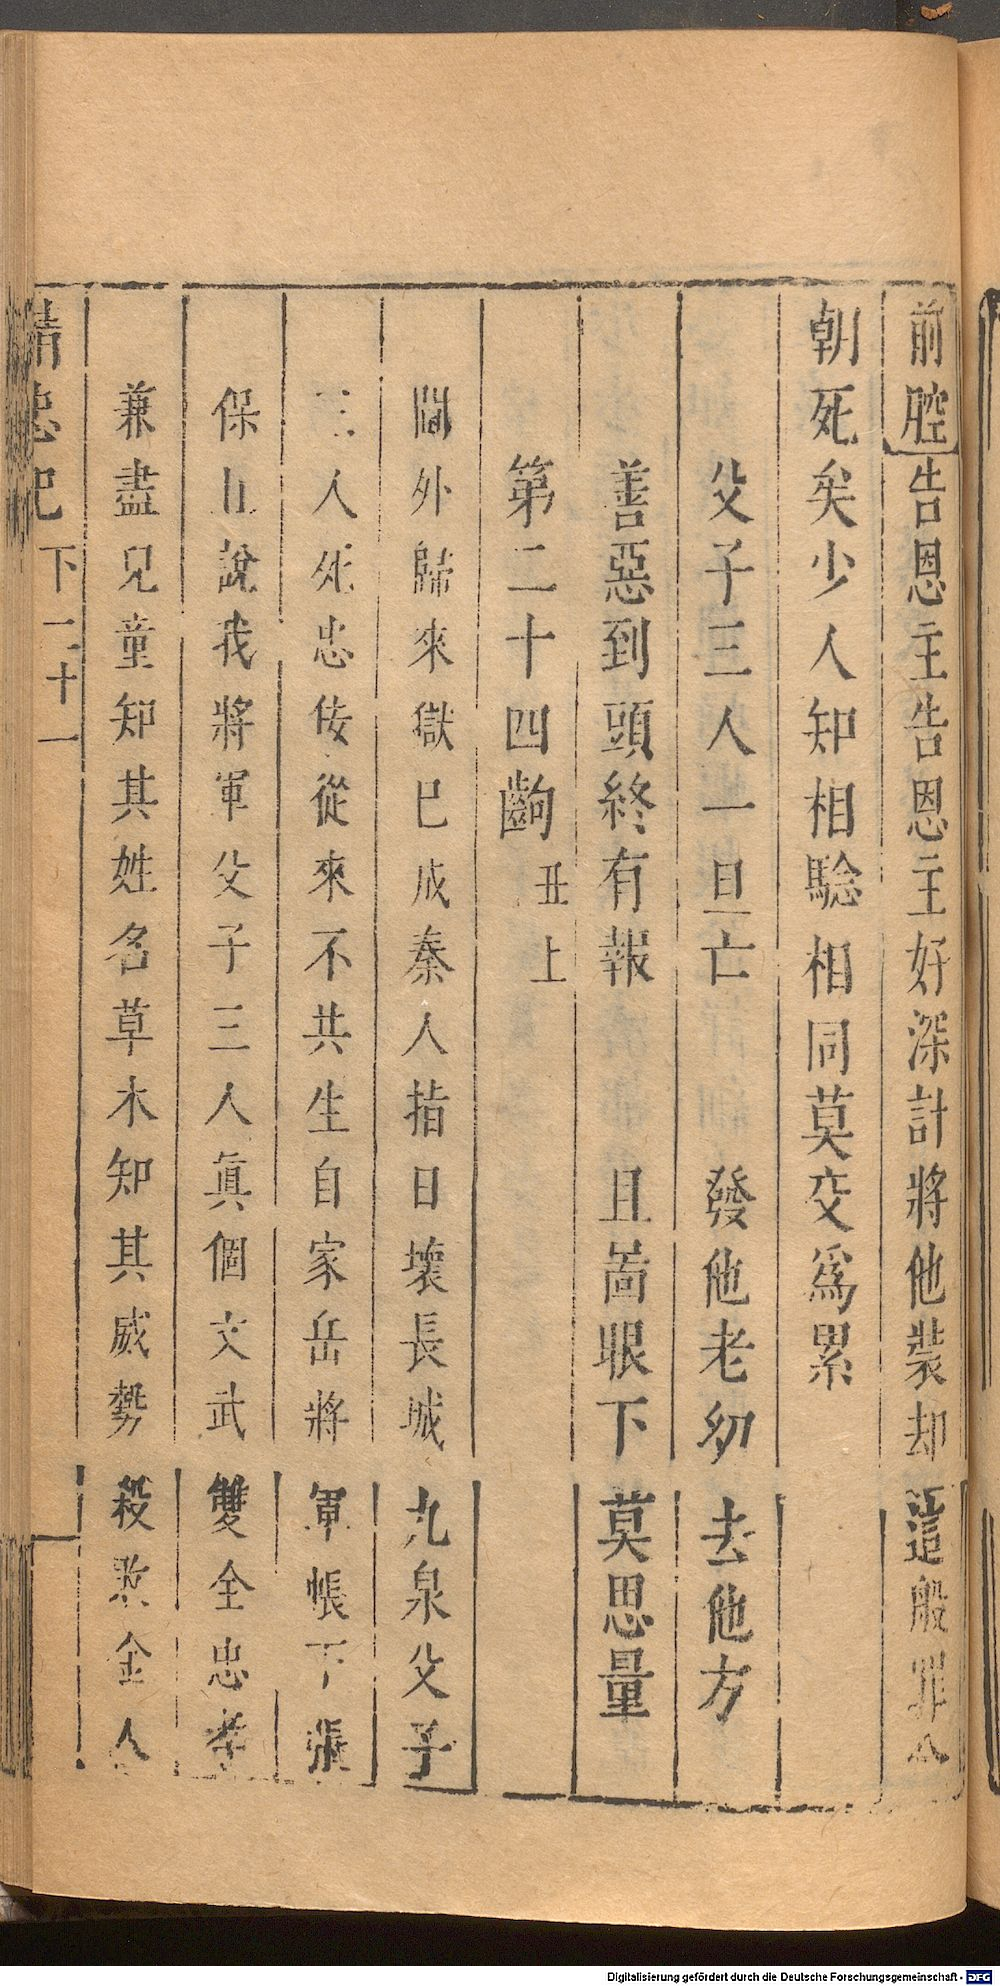 前腔告恩主告恩主好深計將他裝却這般罪今
朝死矣少人知相騐相同莫交爲累
父子三人一旦亡 發他老幼去他方
善惡到頭終有報 且啚眼下莫思量
第二十四齣 丑上
閫外歸來獄巳成秦人指日壞長城九泉父子
三人死忠佞從來不共生自家岳將軍帳下張
保且說我將軍父子三人眞個文武雙全忠孝
兼盡兒童知其姓名草木知其威勢殺敗金人
精忠記 下 二十一
Digitalisierung gefördert durch die Deutsche Forschungsgemeinschaft - DFG